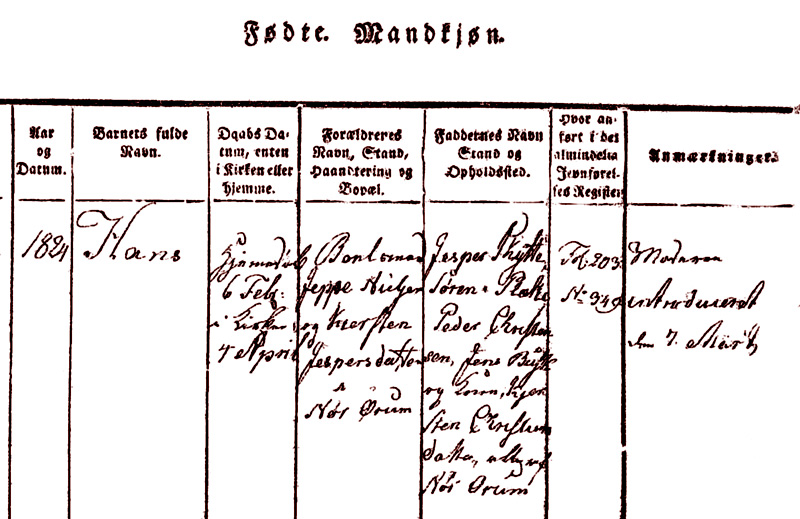 Fødte. Mandkjøn.
Aar
og
Datum.
Barnets fulde
Navn.
Daabs Da-
tum, enten
i Kirken eller
hjemme.
Forældrenes
Navn, Stand,
Haandtering og
Bopæl.
Faddernes Navn
Stand og
Opholdssted.
Hvor an-
ført i det
almindelig
Jevnførel-
ses Register
Anmærkninger.
1824
Hans
Hjemedøb
6 Febr:
i Kirken
4 April
Jeppe Nielsen
og Kiersten
Jespersdatter
Nör Ørum
Jesper Bytte,
Sören
Peder Christen
sen, Jens
og Kone, Kjer
sten Christens
datter, alle af
Nör Orum
Fol. 203
No 349
Moderen
introduceret
den 7. Märtz